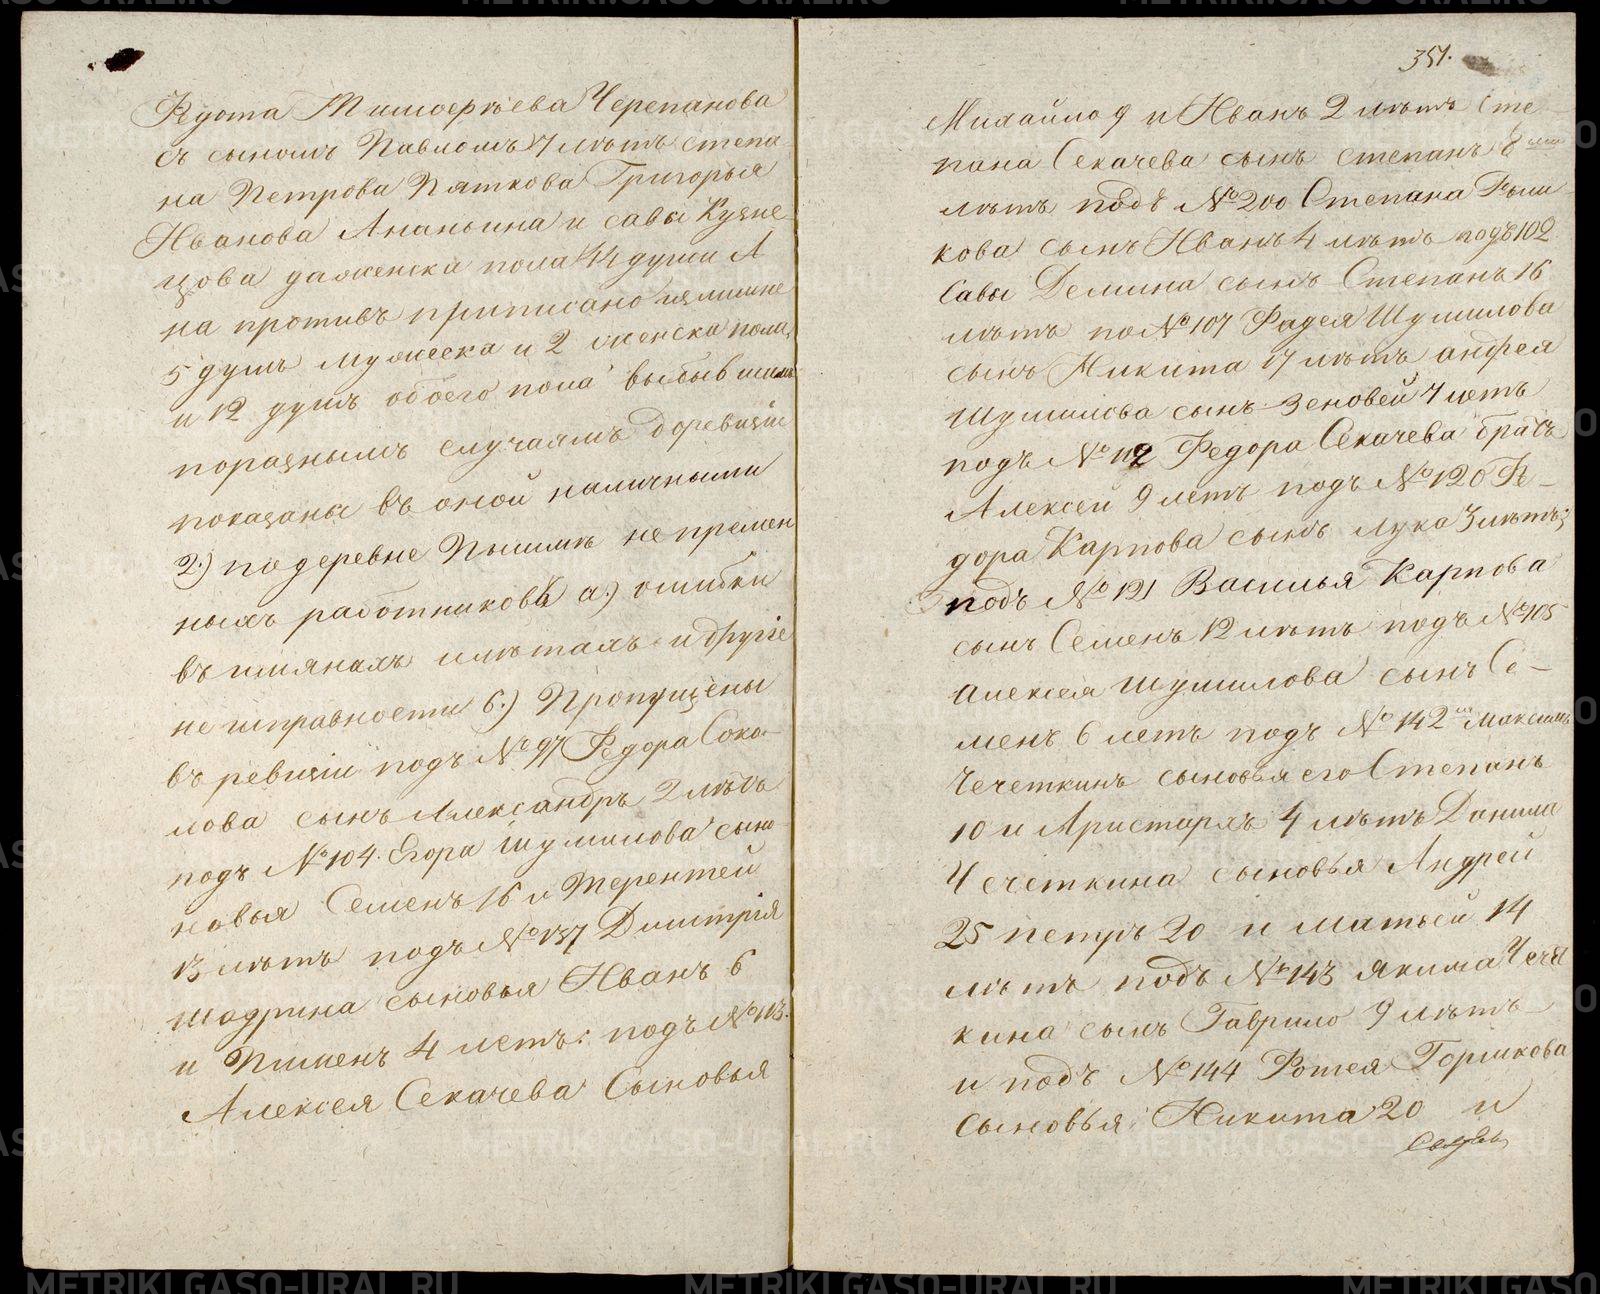 Ѳедота Тимоѳѣева Черепанова
съ сыномъ Павломъ 7 лѣтъ степа
на Петрова Пяткова Григорья
Иванова Ананьина и савы Кузне
цова да женска пола 14 души А
на противъ приписано излишне
5 душъ мужеска и 2 женска пола,
и 12 душъ обоего пола выбывшими
поразнымъ случаямъ доревизіи
показаны въ оной наличными
2.) по деревне Пышмѣ не премен
ныхъ работниковъ а.) ошибки
въ имянахъ илѣтахъ и другіе
не исправности б.) Пропущены
въ ревизіи подъ № 97 Ѳедора Соко-
лова сынъ Александръ 2 лѣтъ
подъ № 104. Егора Шумилова сыно
новья Семенъ 16 и Терентей
13 лѣтъ подъ № 137 Дмитрія
Шадрина сыновья Иванъ 6
и Пименъ 4 летъ: подъ № 113.
Алексея Секачева Сыновья
351.
Михайло 9 и Иванъ 2 лѣтъ Сте
пана Секачева сынъ степанъ 8
лѣтъ подъ № 200 Степана Рыш
кова сынъ Иванъ 4 лѣтъ подъ 102
Савы Демина сынъ Степанъ 16
лѣтъ по № 107 Фадея Шумилова
сынъ Никита 17 лѣтъ андрея
Шумилова сынъ Зеновей 4 летъ
подъ № 112 Федора Секачева братъ
Алексей 9 летъ подъ № 120 Ѳе-
дора Карпова сынъ лука 3 лѣтъ;
подъ № 121 Василья Карпова
сынъ Семенъ 12 лѣтъ подъ № 105
алексея Шумилова сынъ Се-
менъ 6 летъ подъ № 142 Максимъ
Чечеткинъ сыновья его Степанъ
10 и Аристархъ 4 лѣтъ Данила
Чечеткина сыновья Андрей
25 петръ 20 и матвей 14
лѣтъ подъ № 143 якима Чечет
кина сынъ Гаврило 9 лѣтъ
и подъ № 144 Фотея Горшкова
сыновья: Никита 20 и